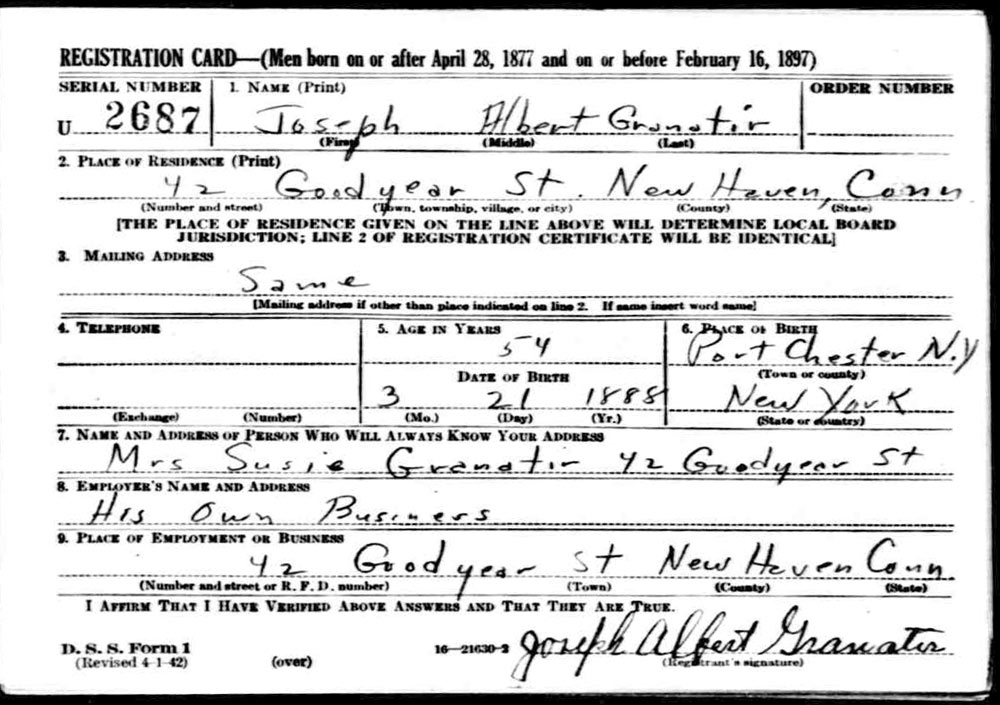 REGISTRATION CARD—(Men born on or after April 28, 1877 and on or before February 16, 1897)
SERIAL NUMBER 1. NAME (Print) ORDER NUMBER
U 2687 Joseph Albert Granatir
(First) (Middle) (Last)
2. PLACE OF RESIDENCE (Print)
42 Goodyear St. New Haven, Conn
(Number and street) (Town, township, village, or city) (County) (State)
[THE PLACE OF RESIDENCE GIVEN ON THE LINE ABOVE WILL DETERMINE LOCAL BOARD
JURISDICTION; LINE 2 OF REGISTRATION CERTIFICATE WILL BE IDENTICAL]
3. MAILING ADDRESS
Same
[Mailing address if other than place indicated on line 2. If same insert word same]
4. TELEPHONE 5. AGE IN YEARS 6. PLACE OF BIRTH
54 Port Chester N.Y
DATE OF BIRTH (Town or county)
3 21 1888 New York
(Exchange) (Number) (Mo.) (Day) (Yr.) (State or country)
7. NAME AND ADDRESS OF PERSON WHO WILL ALWAYS KNOW YOUR ADDRESS
Mrs Susie Granatir 42 Goodyear St
8. EMPLOYER'S NAME AND ADDRESS
His Own Business
9. PLACE OF EMPLOYMENT OR BUSINESS
42 Goodyear St New Haven Conn
(Number and street or R. F. D. number) (Town) (County) (State)
I AFFIRM THAT I HAVE VERIFIED ABOVE ANSWERS AND THAT THEY ARE TRUE.
D. S. S. Form 1 16—21630-2 Joseph Albert Granatir
(Revised 4-1-42) (over) (Registrant's signature)